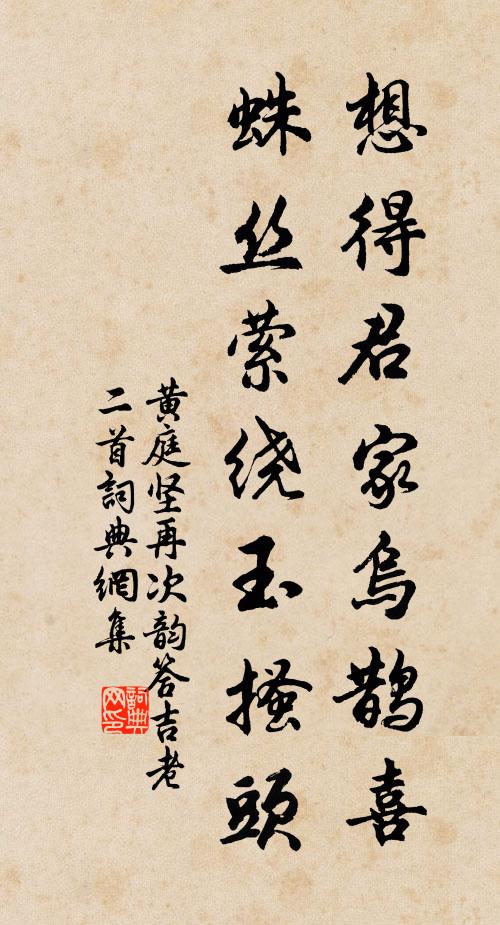 想得君家乌鹊喜
蛛丝萦绕玉搔头
黄庭坚再次韵答吉老
二首詞典網集
詞典
网印